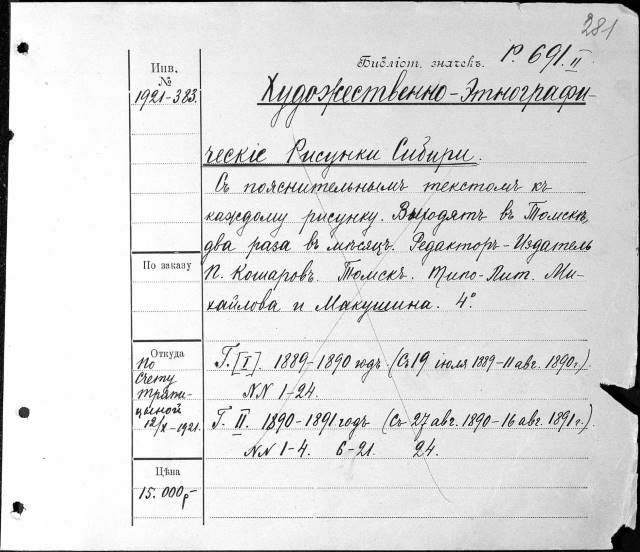 281
Библіот. значекъ. Р. 691. II
Инв.
№
1921-383.
Художественно-Этнографи-
ческіе Рисунки Сибири.
Съ пояснительнымъ текстомъ къ
каждому рисунку. Выходятъ въ Томскѣ
два раза въ мѣсяцъ. Редакторъ-Издатель
П. Кошаровъ. Томскъ. Типо-Лит. Ми-
хайлова и Макушина. 4°.
По заказу
Откуда
По
счету
12/X-1921.
Г. [I]. 1889-1890 годъ. (Съ 19 іюля 1889-11 авг. 1890 г.).
NN 1-24.
Г. II. 1890-1891 годъ (Съ 27 авг. 1890-16 авг. 1891 г.).
NN 1-4. 6-21. 24.
Цѣна
15.000 р-